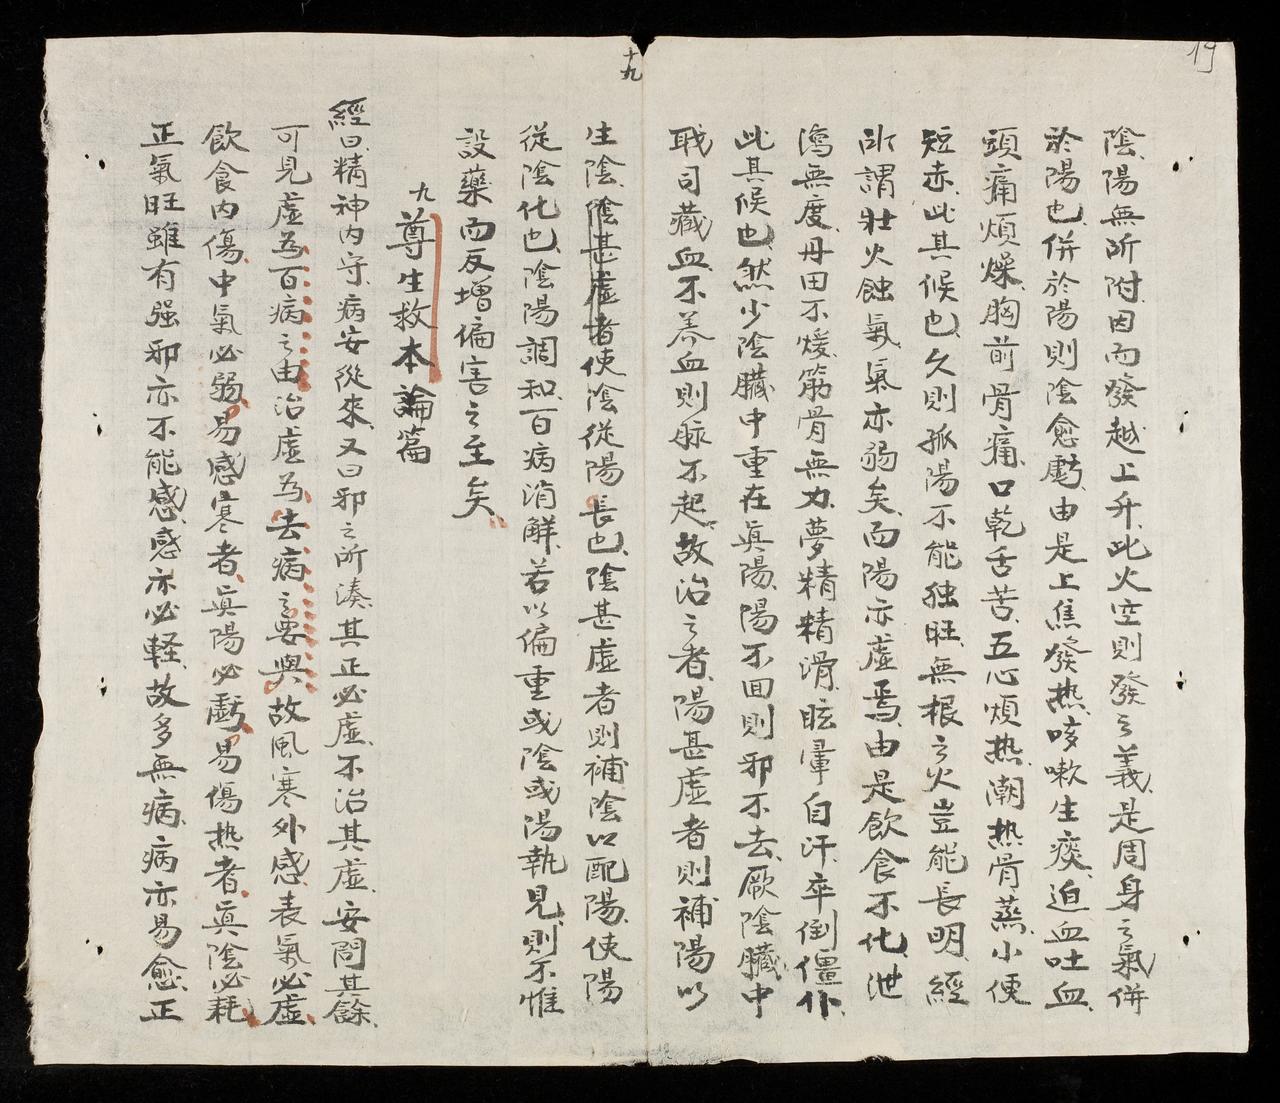 19
十九
陰陽無所附因而發越上升此火空則發之義是周身之氣併
於陽也併於陽則陰愈虧由是上焦發热咳嗽生痰迫血吐血
頭痛煩燥胸前骨痛口乾舌苦五心煩热潮热骨蒸小便
短赤此其候也久則孤陽不能独旺無根之火豈能長明經
所謂壮火蝕氣氣亦弱矣而陽亦虛焉由是飲食不化泄
瀉無度丹田不煖筋骨無力夢精精滑眩暈自汗卒倒僵仆
此其候也然少陰臟中重在眞陽陽不回則邪不去厥陰臟中
職司藏血不养血則脉不起故治之者陽甚虛者則補陽以
生陰陰甚虛者使陰從陽長也陰甚虛者則補陰以配陽使陽
從陰化也陰陽調和百病消解若以偏重或陰或陽執見則不惟
設藥而反增偏害之至矣
九尊生救本論篇
經曰精神內守病安從來又曰邪之所湊其正必虛不治其虛安問其餘
可見虛為百病之由治虛為去病之要與故風寒外感表氣必虛
飲食内傷中氣必弱易感寒者眞陽必虧易傷热者眞陰必耗
正氣旺雖有强邪亦不能感感亦必軽故多無病病亦易愈正